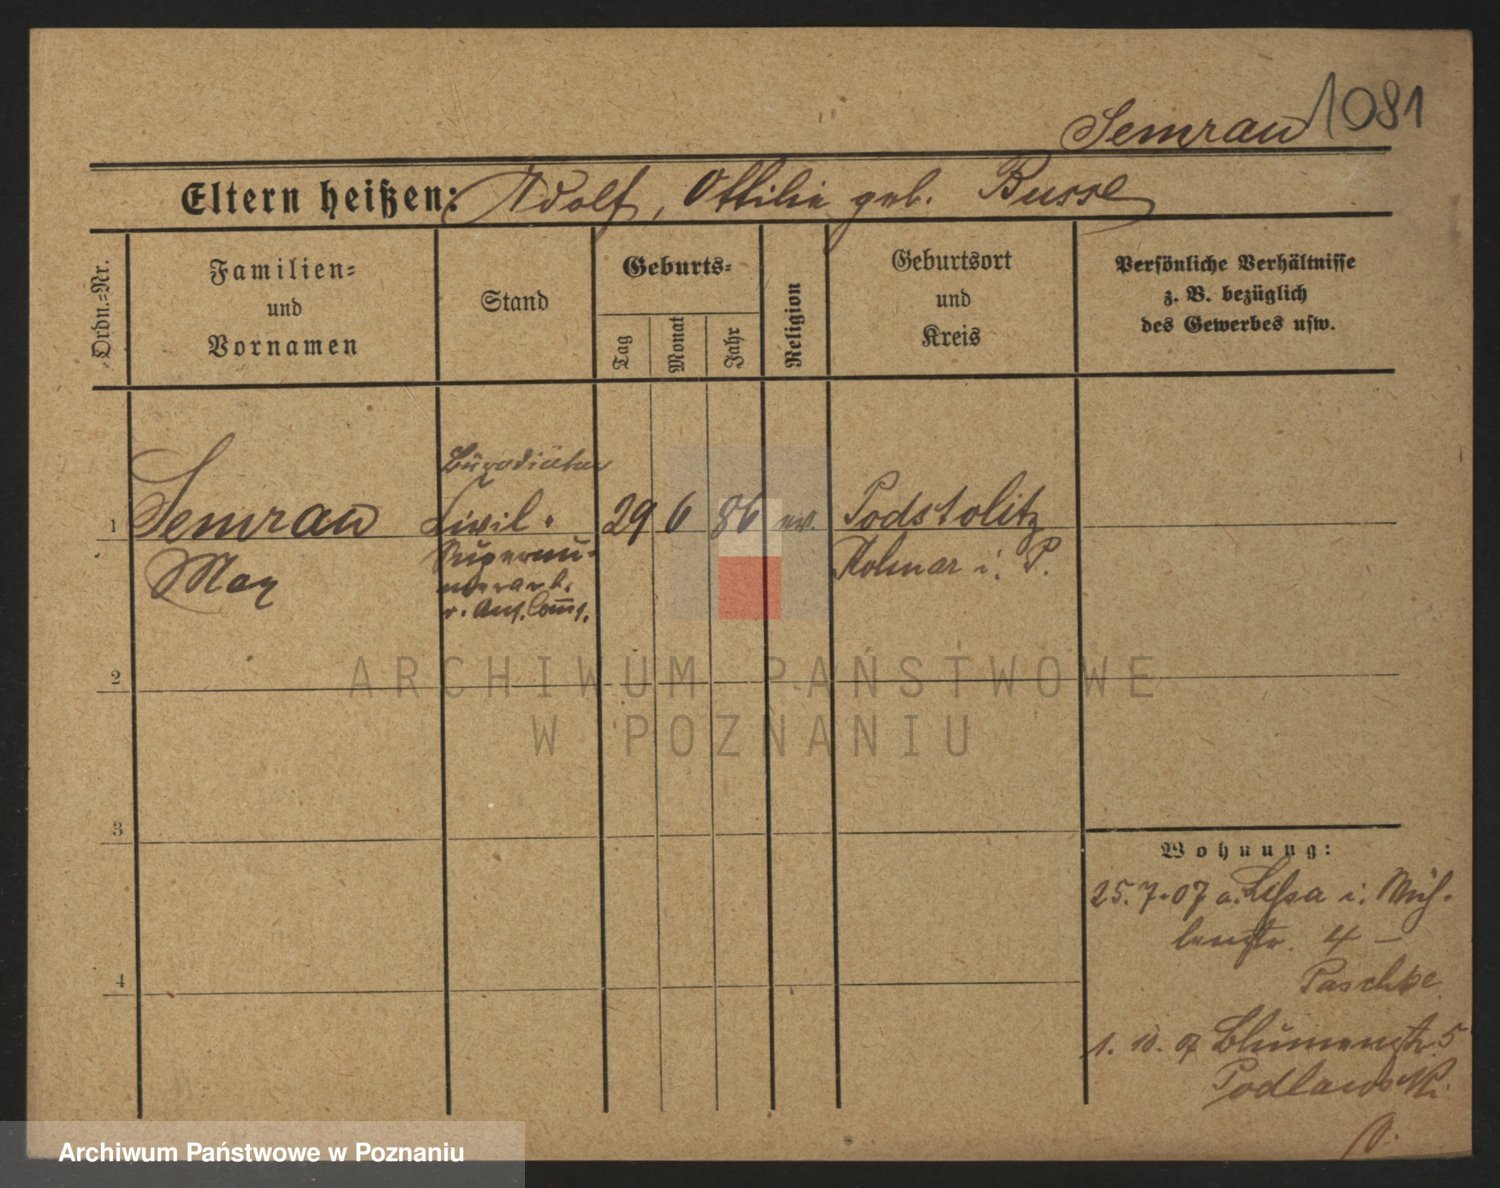 Semrau 1081
Eltern heißen: Adolf, Ottilie geb. Busse
Ordn.-Nr.
Familien-
und
Vornamen
Stand
Geburts-
Tag
Monat
Jahr
Religion
Geburtsort
und
Kreis
Persönliche Verhältnisse
z. B. bezüglich
des Gewerbes usw.
Bürodiätar
1 Semrau Civil- 29 6 86 ev. Podstolitz
Max Supernu- Kolmar i. P.
merar b.
d. Ans. Com̅s.
2
3
4
Wohnung:
25. 7. 07 a. Lissa i. Müh-
lenstr. 4 –
Paschke
1. 10. 07 Blumenstr. 5
Podlawski
ARCHIWUM PAŃSTWOWE
W POZNANIU
Archiwum Państwowe w Poznaniu